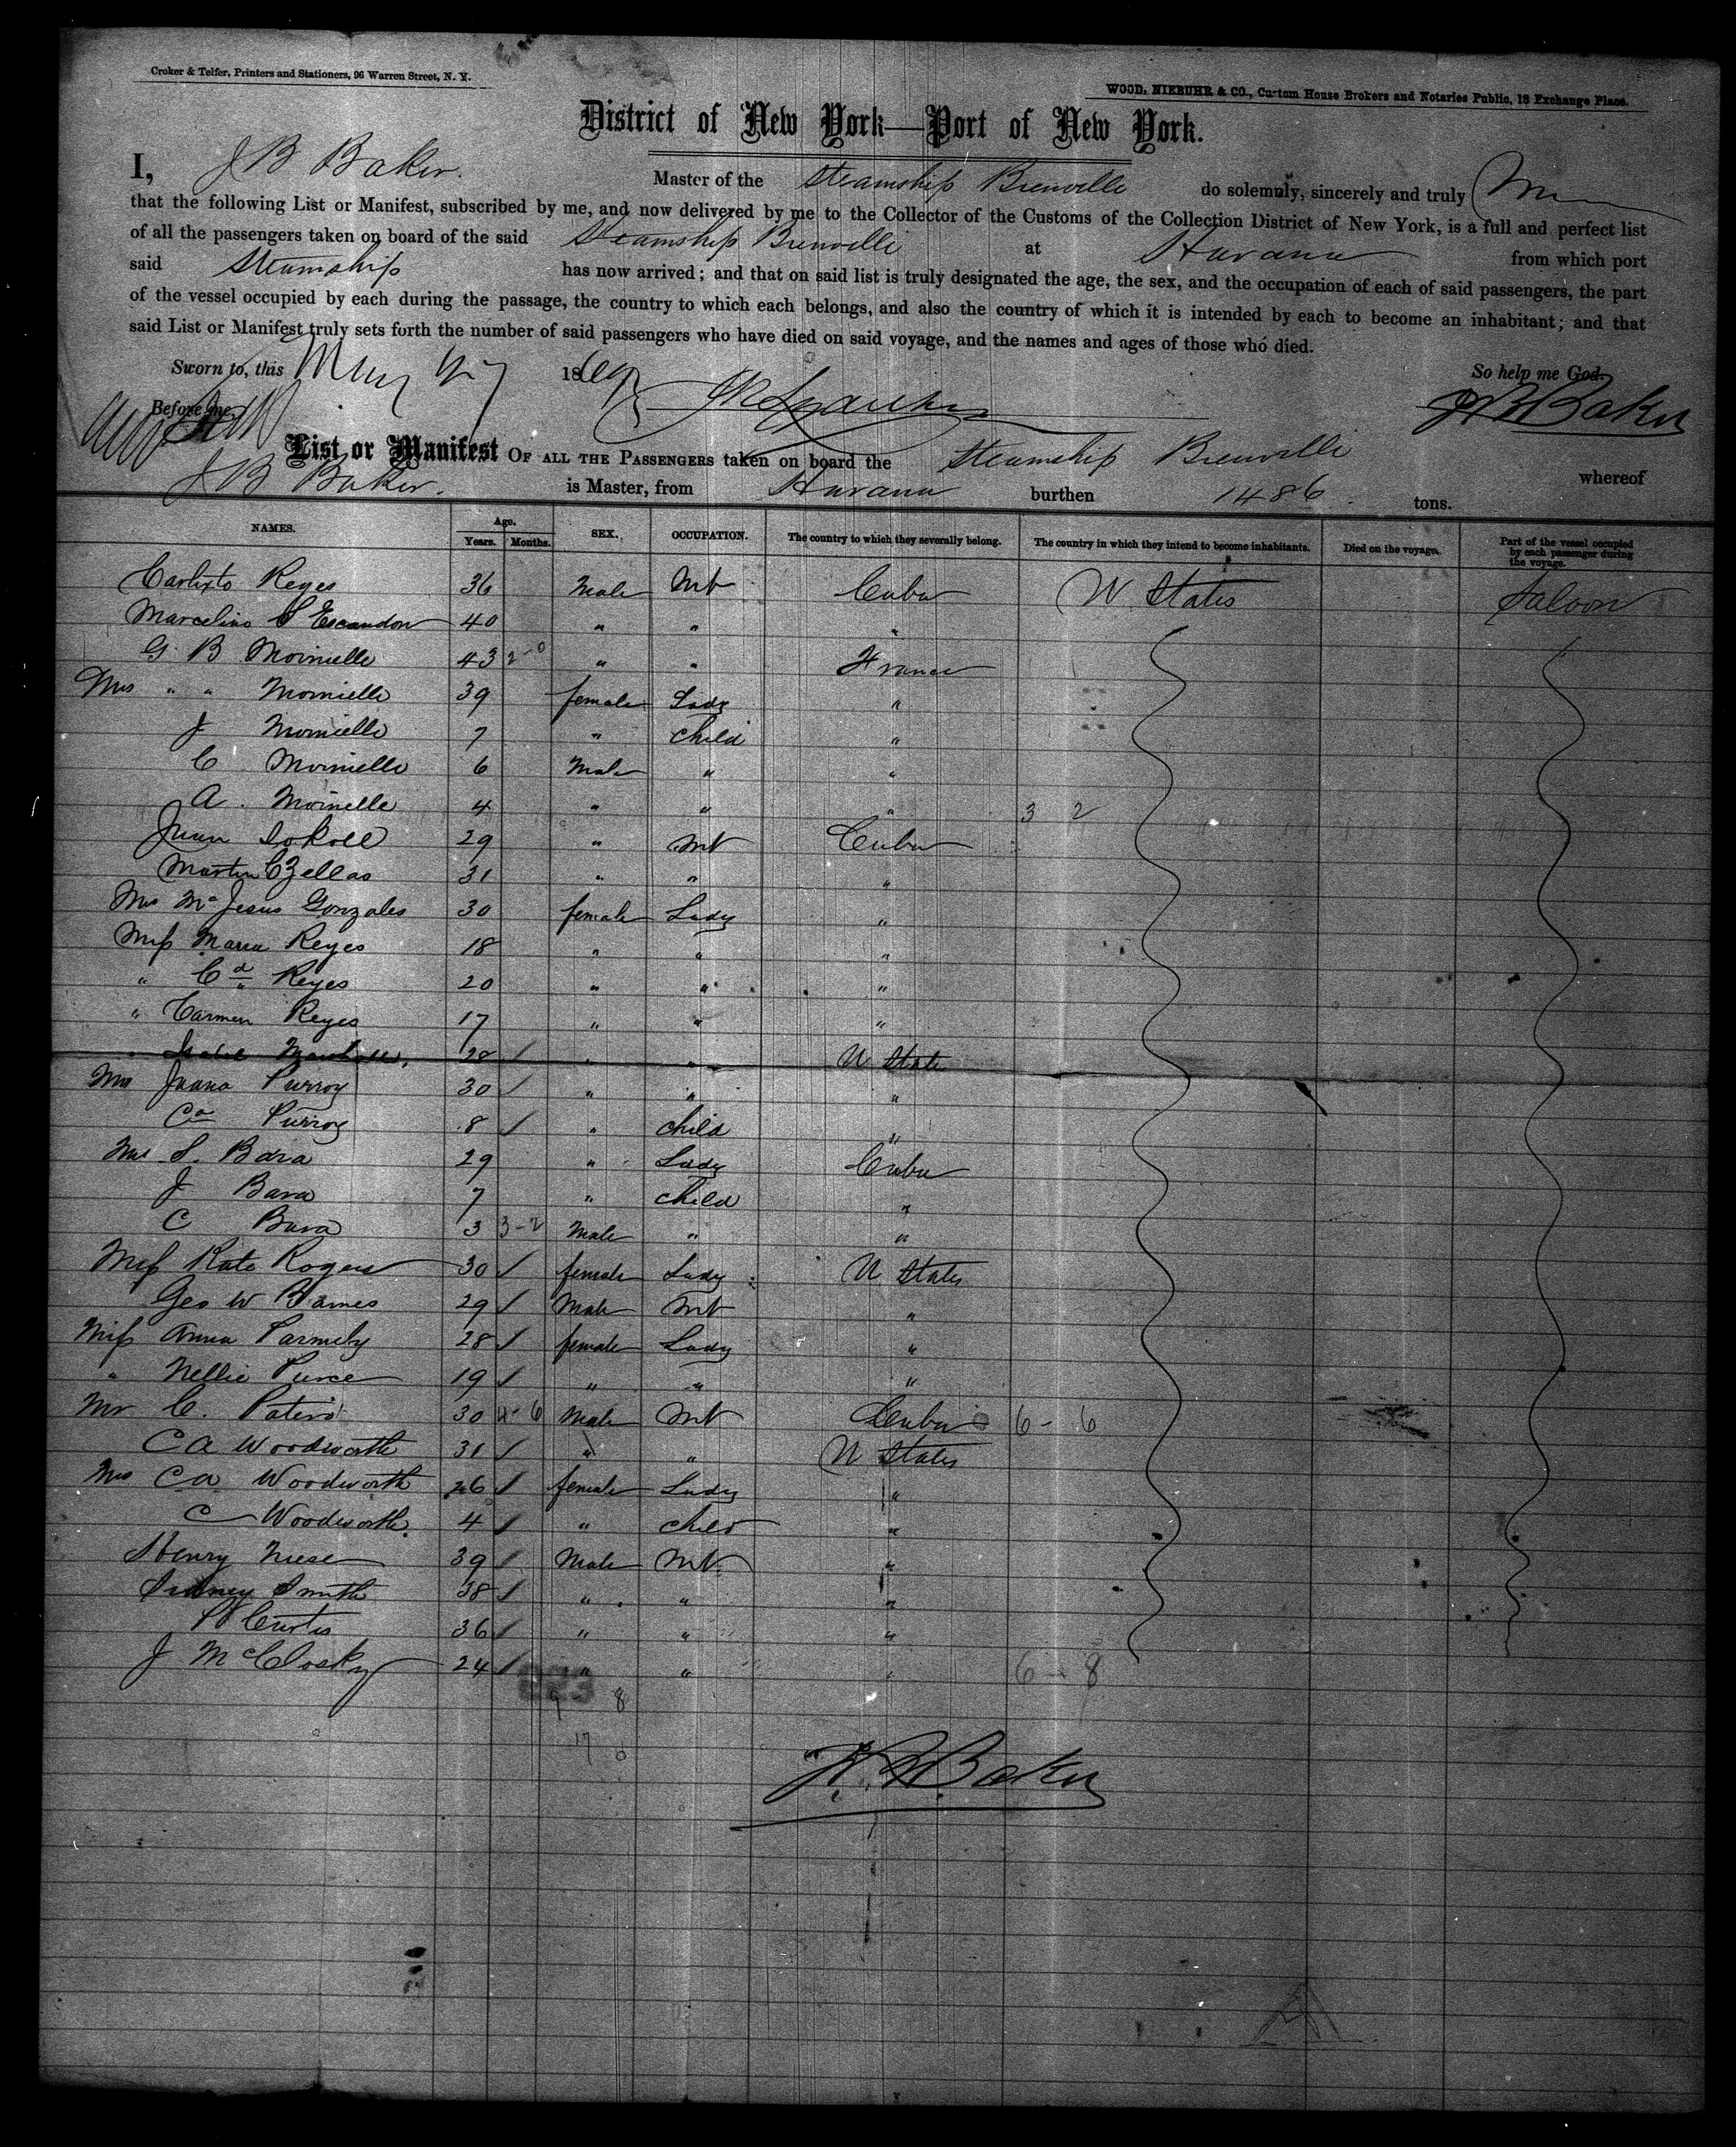 Croker & Telfer, Printers and Stationers, 96 Warren Street, N. Y.
WOOD, NIEBUHR & CO., Custom House Brokers and Notaries Public, 18 Exchange Place.
District of New York—Port of New York.
I, J B Baker. Master of the Steamship Bienville do solemnly, sincerely and truly
that the following List or Manifest, subscribed by me, and now delivered by me to the Collector of the Customs of the Collection District of New York, is a full and perfect list
of all the passengers taken on board of the said Steamship Bienville at Havana from which port
said Steamship has now arrived; and that on said list is truly designated the age, the sex, and the occupation of each of said passengers, the part
of the vessel occupied by each during the passage, the country to which each belongs, and also the country of which it is intended by each to become an inhabitant; and that
said List or Manifest truly sets forth the number of said passengers who have died on said voyage, and the names and ages of those who died.
Sworn to, this May 27 1867 So help me God.
Before me, J B Baker
List or Manifest OF ALL THE PASSENGERS taken on board the Steamship Bienville whereof
J B Baker. is Master, from Havana burthen 1486 tons.
NAMES. Age. Years. Months. SEX. OCCUPATION. The country to which they severally belong. The country in which they intend to become inhabitants. Died on the voyage. Part of the vessel occupied by each passenger during the voyage.
Carlixto Reyes 36 Male Mt Cuba U States Saloon
Marcelino S Escandon 40 " " "
G B Moinielle 43 2-0 " " France
Mrs " " Moinielle 39 female Lady "
J Moinielle 7 " child "
C Moinielle 6 Male " "
A. Moinelle 4 " " " 3 2
Juan 29 " Mt Cuba
Martin 31 " " "
Mrs Ma Jesus Gonzales 30 female Lady "
Miss Maria Reyes 18 " " "
" Cd Reyes 20 " " "
" Carmen Reyes 17 " " "
" Isabel 28 " " U State
Mrs Juana Purroy 30 " " "
Ca Purroy 8 " child "
Mrs S. Bara 29 " Lady Cuba
J Bara 7 " child "
C Bara 3 3-2 Male " "
Miss Kate Rogers 30 female Lady U States
Geo W Barnes 29 Male Mt "
Miss Anna Parmely 28 female Lady "
" Nellie Pierce 19 " " "
Mr C. 30 4-6 Male Mt Cuba 6-6
C A Woodworth 31 " " U States
Mrs C A Woodworth 26 female Lady "
C Woodworth. 4 " child "
Henry Niese 39 Male Mt "
Sidney Smith 38 " " "
Curtis 36 " " "
J McClosky 24 " " " 6-8
9 8
17 0
J. B. Baker